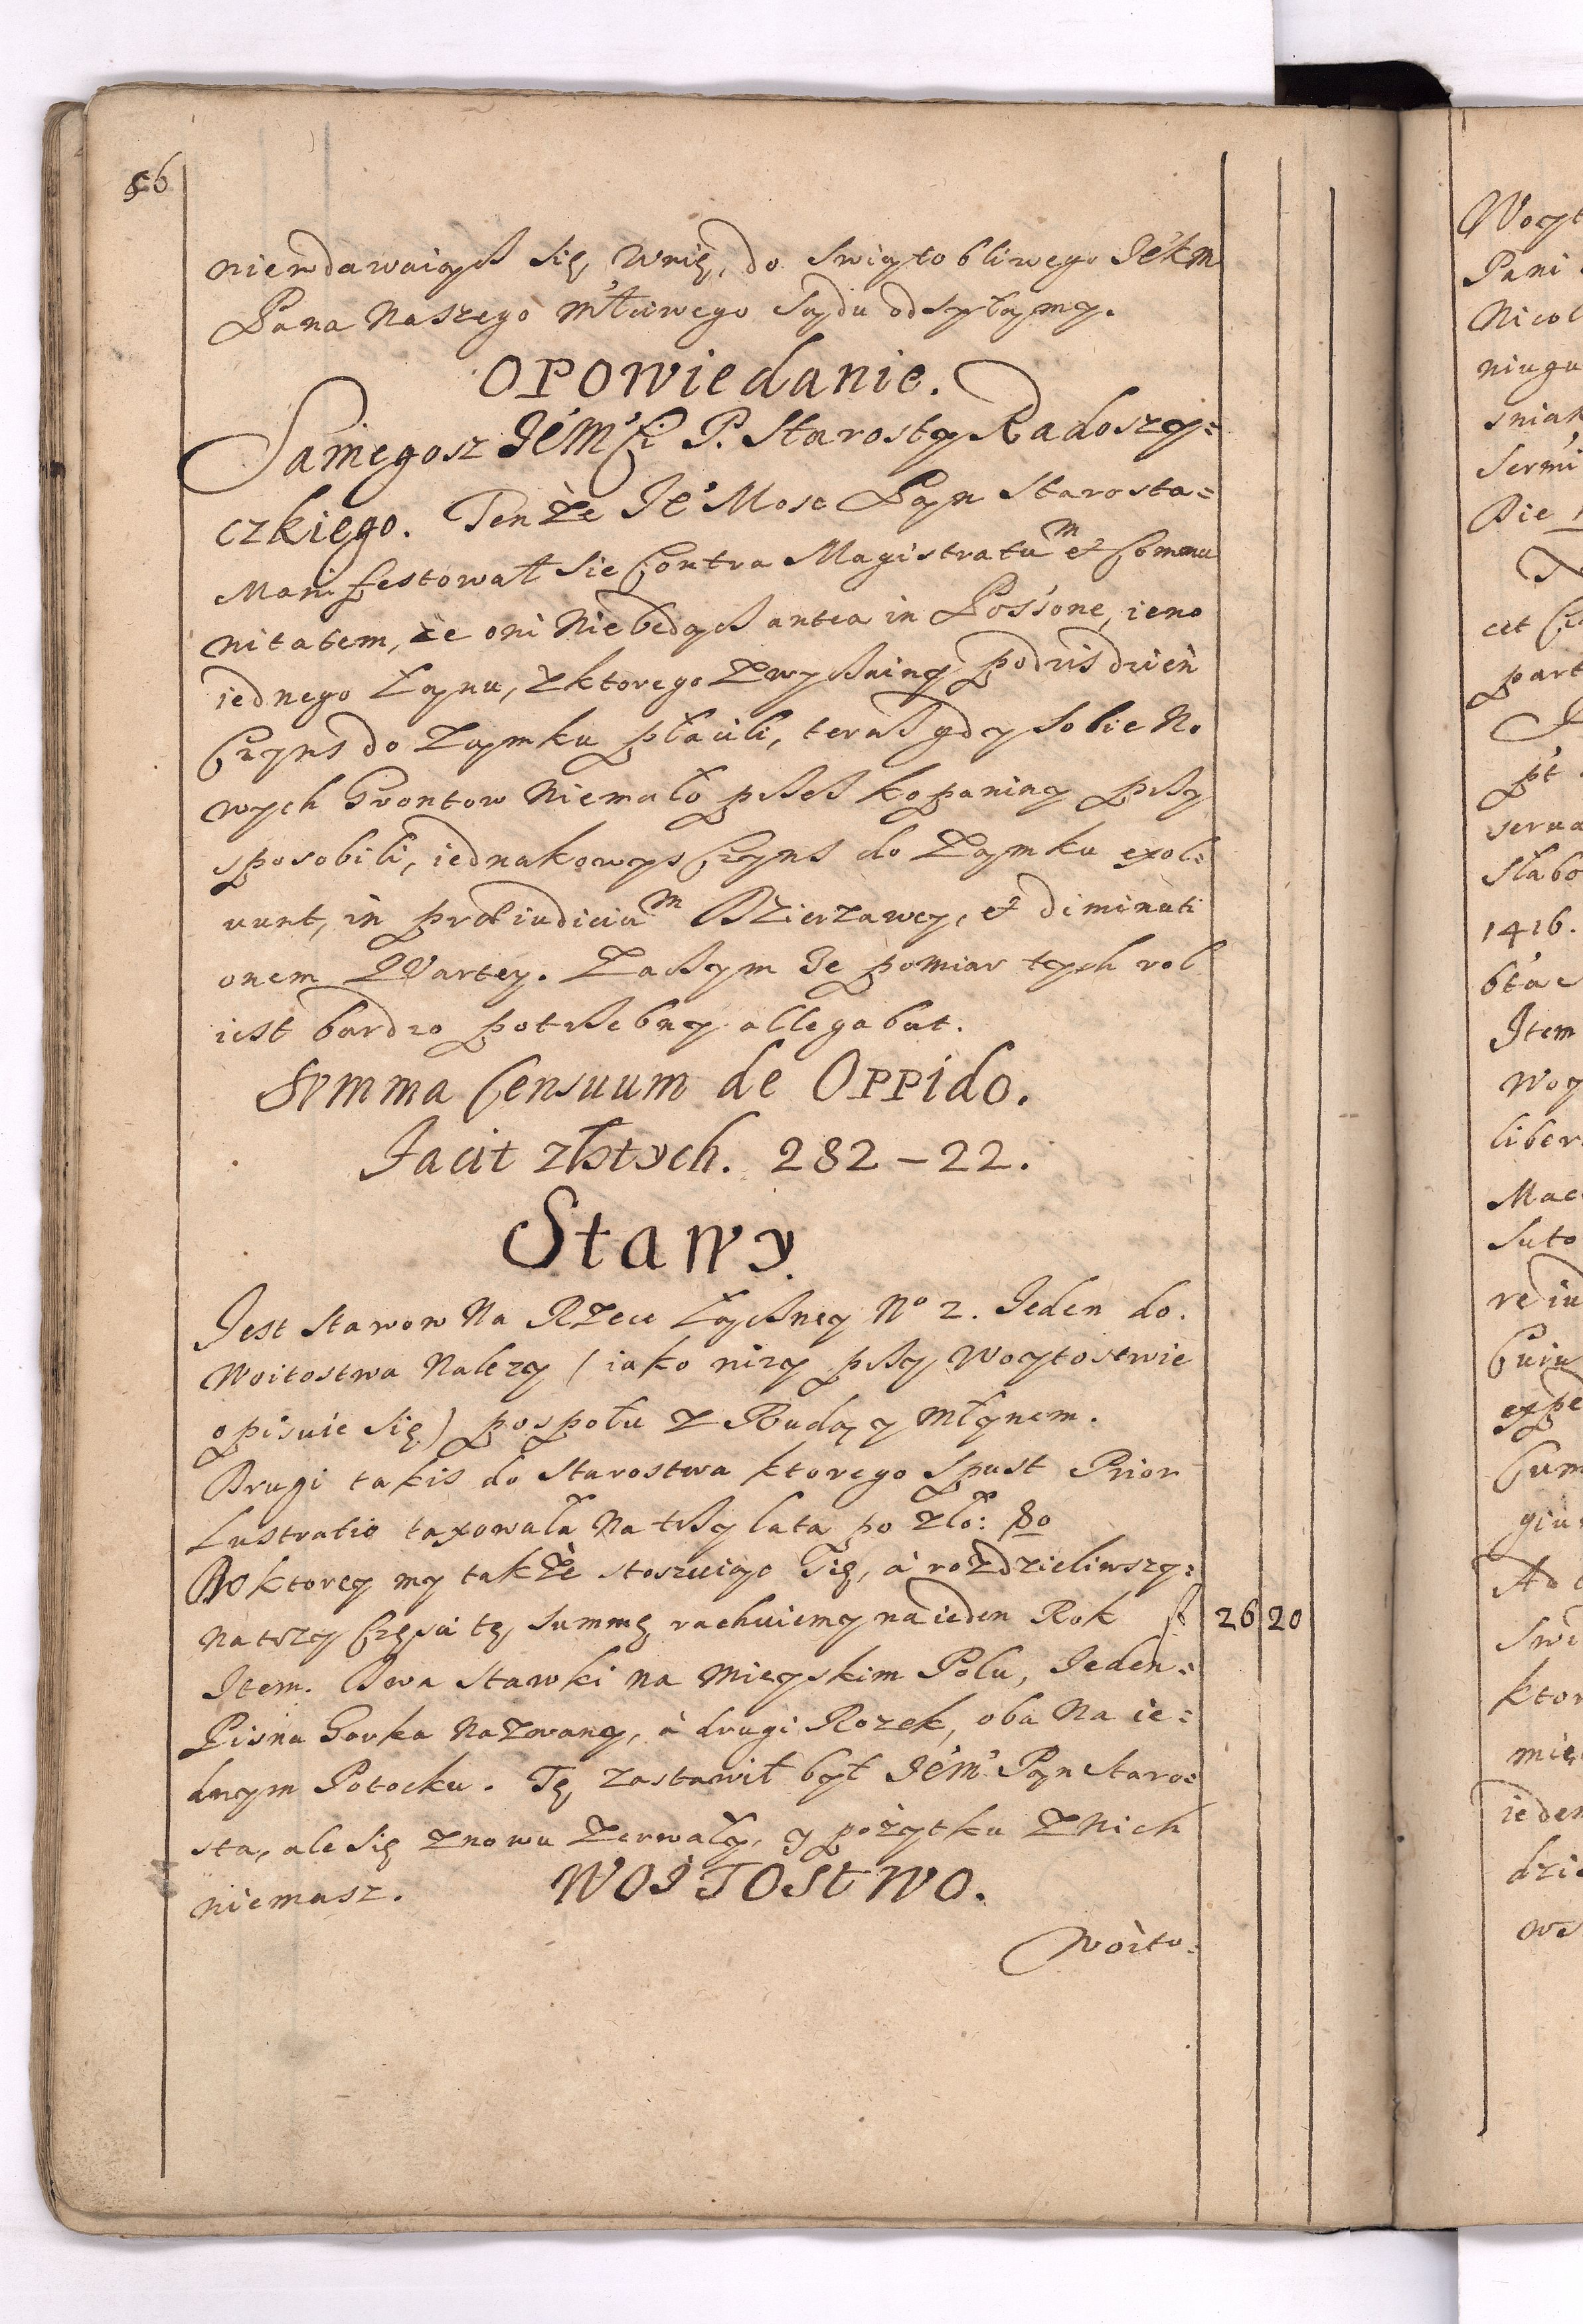 56
niewdawaiąch się wnię, do swiątobliwego JéKM
Pana Naszego Młciwego sądu odsyłamy.
OPOWiedanie.
Samegosz JéMści P. Starosty Radoszy=
czkiego. Tenże Jé Mosc Pan Starosta=
Manifestował sie Contra Magistratum et Commu
nitatem, że oni Niebędąch antea in Possone, ieno
iednego Łanu, z ktorego zwyßainy podzisdzień
Czyns do Zamku płacili, teraß gdy sobie No
wych Grontow Niemało przeß kopaniny przy
sposobili, iednakowys Czyns do Zamku exol=
uunt, in praeiudicium Dzierzawcy, et diminuti
onem Quartey. Zaßym że pomiar tych rol
iest bardzo potrzebny allegabat.
Summa Censuum de Oppido.
Facit złotych. 282 – 22.
Stawy
Jest Stawow Na Rzece Łączney No 2. Jeden do
Woitostwa Nalezy (iako nizy przy Woytostwie
opisuie się) pospołu z Rudą y Młynem.
Drugi takis do Starostwa ktorego Spust Prior
Lustratio taxowała Na trzy lata po zło: 80
Do ktorey my także stoszuiąc się, à rozdzieliwszy=
na trzy Częsci tę summę rachuiemy na ieden Rok f 26 20
Item. Dwa Stawki na Mieyskim Polu, Jeden=
Pisna Gorka Nazwany, à drugi Rozek, oba Na ie=
dnym Potocku. Tę zastawił był JéM Pan Staro=
sta, ale się znowu zerwały, y pożytku z Nich
niemasz.
WOITOStWO.
Woito=